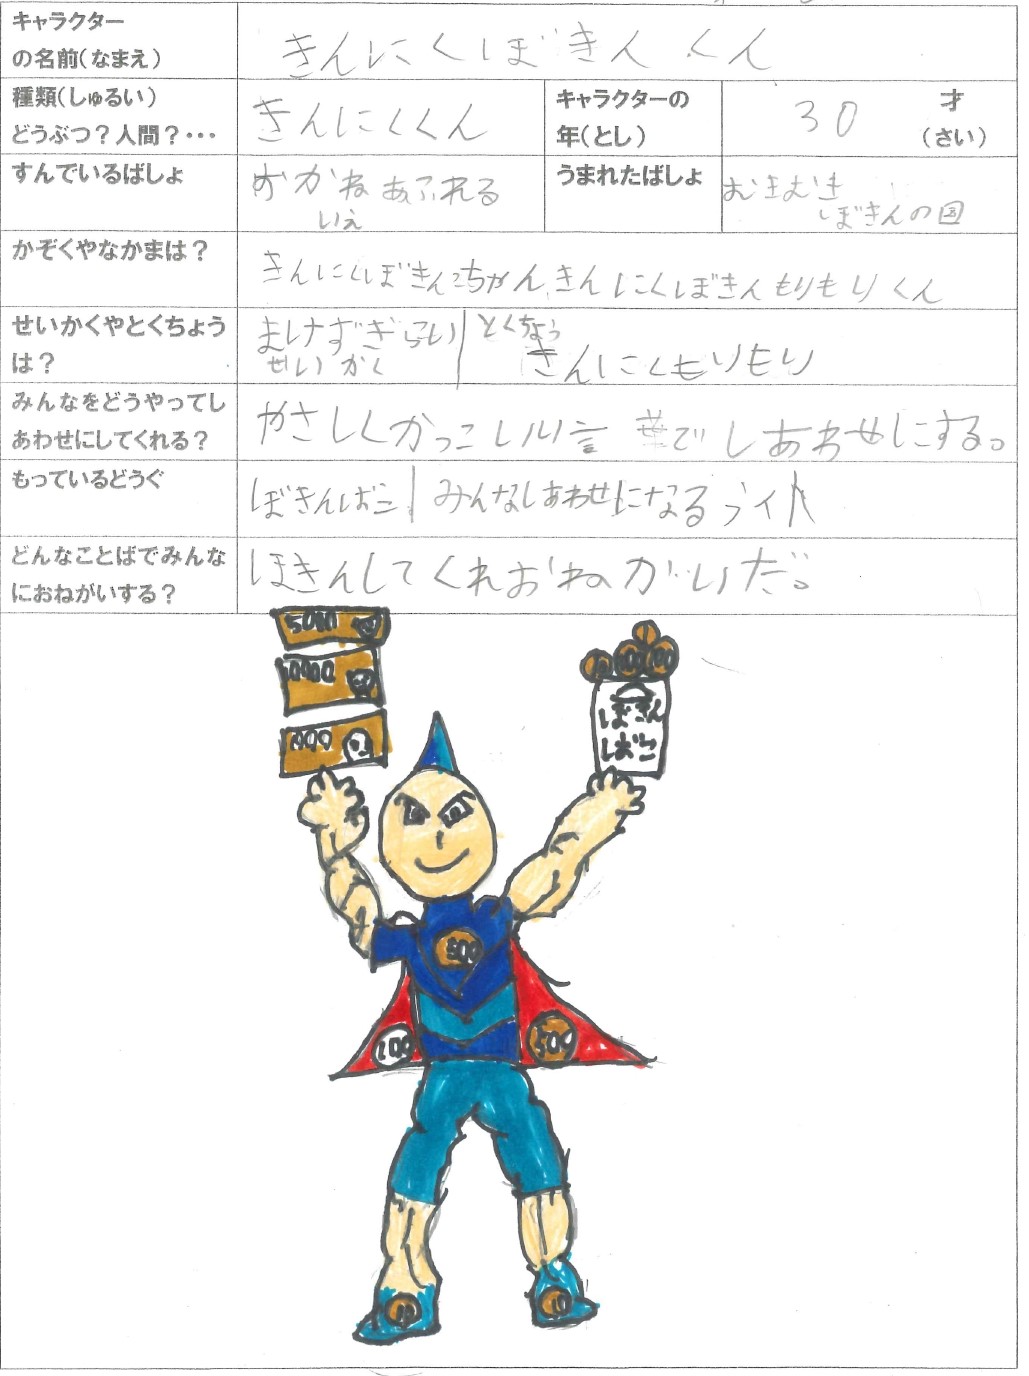 キャラクター
の名前(なまえ)
きんにくぼきんくん
種類(しゅるい)
どうぶつ?人間?・・・
きんにくくん
キャラクターの
年(とし)
30
才
(さい)
すんでいるばしょ
おかねあふれる
いえ
うまれたばしょ
むきむき
ぼきんの国
かぞくやなかまは?
きんにくぼきんこちゃん、きんにくぼきんもりもりくん
せいかくやとくちょう
は?
まけずぎらい
せいかく
とくちょう
きんにくもりもり
みんなをどうやってし
あわせにしてくれる?
やさしくかっこいい言葉でしあわせにする。
もっているどうぐ
ぼきんばこ
みんなしあわせになるライト
どんなことばでみんな
におねがいする?
ぼきんしてくれおねがいだ。
5000
10000
1000
10
100
100
ぼきん
ばこ
500
100
500
10
10